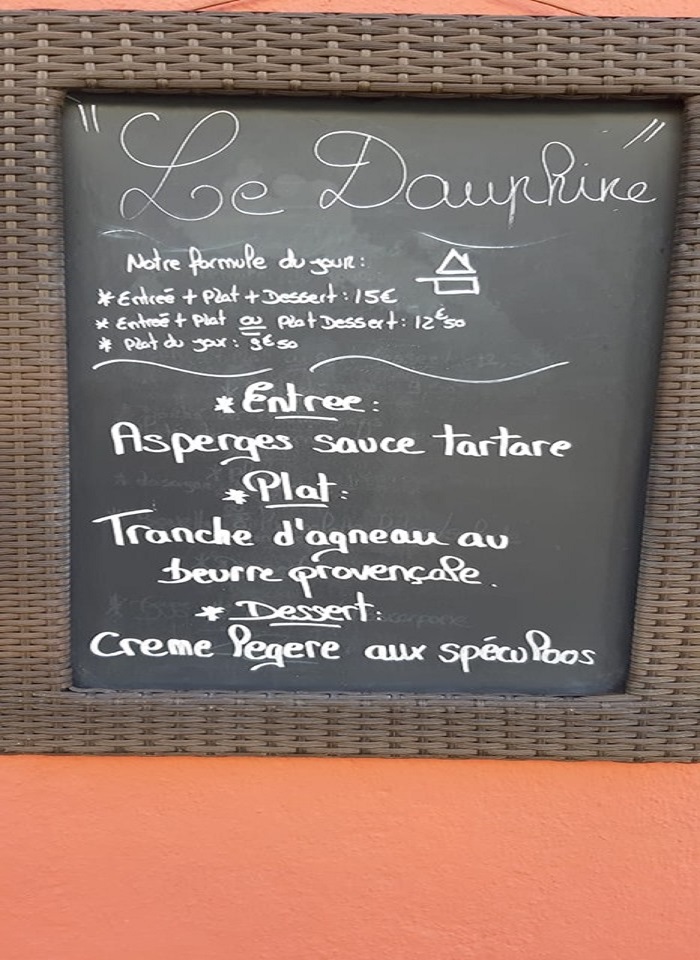 " Le Dauphiné "
Notre formule du jour :
* Entreé + Plat + Dessert : 15€
* Entreé + Plat ou Plat Dessert : 12€50
* Plat du jour : 9€50
* Entree :
Asperges sauce tartare
* Plat :
Tranche d'agneau au
beurre provençale.
* Dessert :
Creme legere aux spéculoos